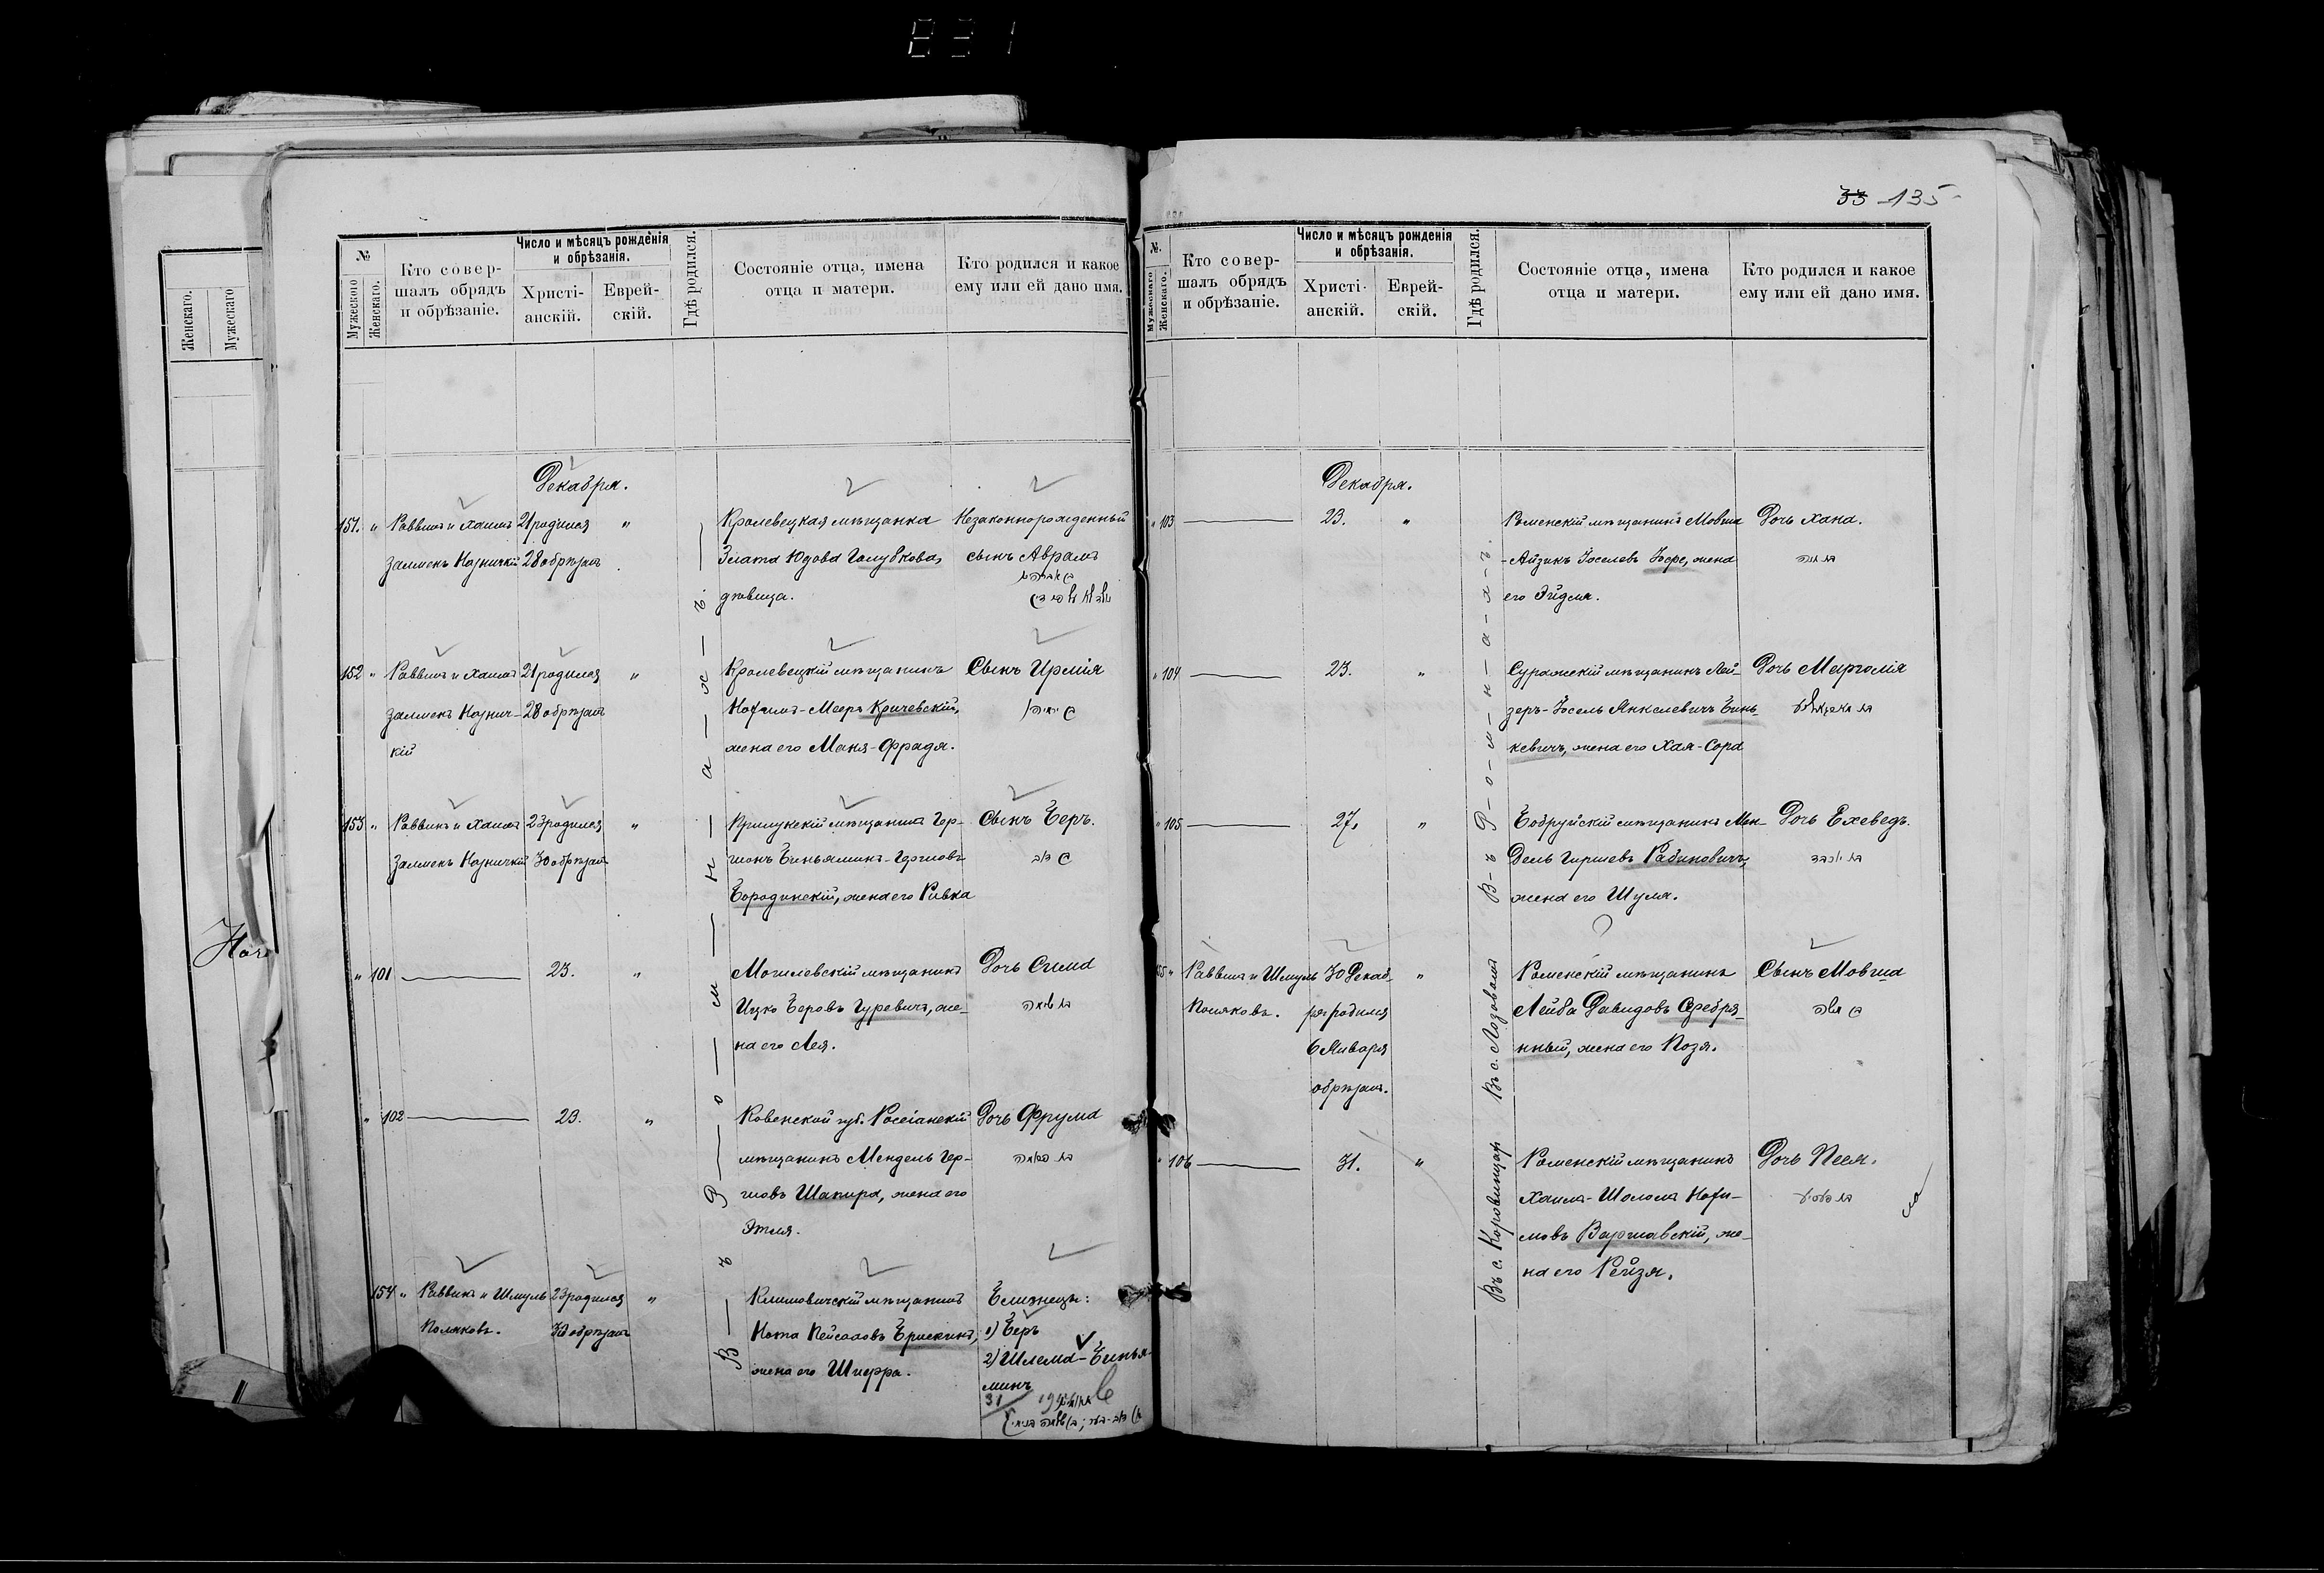 831
33 135
Женскаго.
Мужескаго
№
Мужескаго
Женскаго.
Кто совер-
шалъ обрядъ
и обрѣзаніе.
Число и мѣсяцъ рожденія
и обрѣзанія.
Христі-
анскій.
Еврей-
скій.
Гдѣ родился.
Состояніе отца, имена
отца и матери.
Кто родился и какое
ему или ей дано имя.
Декабря.
151. " Раввинъ и Хаимъ 21 родился "
Залменъ 28 обрѣзанъ
Кролевецкая мѣщанка
Злата Юдова Голубкова,
дѣвица.
Незаконнорожденный
сынъ Аврамъ
152 " Раввинъ и Хаимъ 21 родился "
Залменъ 28 обрѣзанъ
кій
Кролевецкій мѣщанинъ
Нохимъ-Мееръ Кричевскій,
жена его Маня-Фрадя.
Сынъ Ирмія
153 " Раввинъ и Хаимъ 23 родился "
Залменъ 30 обрѣзанъ
Прилукскій мѣщанинъ Гер-
шонъ Биньяминъ-Гершовъ
Бородинскій, жена его Ривка
Сынъ Беръ.
" 101 23. "
Могилевскій мѣщанинъ
Ицко Беровъ Гуревичъ, же-
на его Лея.
Дочь Сима
" 102 23. "
Ковенской губ. Россіанскій
мѣщанинъ Мендель Гер-
шовъ Шапиро, жена его
Этля.
Дочь Фрума
154 " Раввинъ и Шмуль 23 родился "
Поляковъ. 30 обрѣзанъ
Климовичскій мѣщанинъ
Нота Пейсаховъ
жена его Шифра.
Близнецы:
1) Беръ
2) Шлема-Бинья-
минъ
31
Въ Ромнахъ
№.
Мужескаго
Женскаго.
Кто совер-
шалъ обрядъ
и обрѣзаніе.
Число и мѣсяцъ рожденія
и обрѣзанія.
Христі-
анскій.
Еврей-
скій.
Гдѣ родился.
Состояніе отца, имена
отца и матери.
Кто родился и какое
ему или ей дано имя.
Декабря.
" 103 23. "
Роменскій мѣщанинъ Мовша
-Айзикъ Іоселевъ Іофе, жена
его Эйдля.
Дочь Хана.
" 104 23. "
Суражскій мѣщанинъ Лей-
зеръ-Іосель Янкелевичъ Бинь-
кевичъ, жена его Хая-Сора
Дочь Марголія
" 105 27. "
Бобруйскій мѣщанинъ Мен-
дель Гиршевъ Рабиновичъ,
жена его Шуля.
Дочь Ехеведъ.
В-ъ Р-о-м-н-а-х-ъ.
155 " Раввинъ и Шмуль 30 Декаб- "
Поляковъ. ря родился
6 Января
обрѣзанъ.
Въ с. Лозовомъ
Роменскій мѣщанинъ
Лейба Давидовъ Серебря-
нный, жена его Позя.
Сынъ Мовша
" 106 31. "
Въ с. Коровинцахъ
Роменскій мѣщанинъ
Хаимъ-Шоломъ Нохи-
мовъ Варшавскій, же-
на его Рейзя.
Дочь Песя.